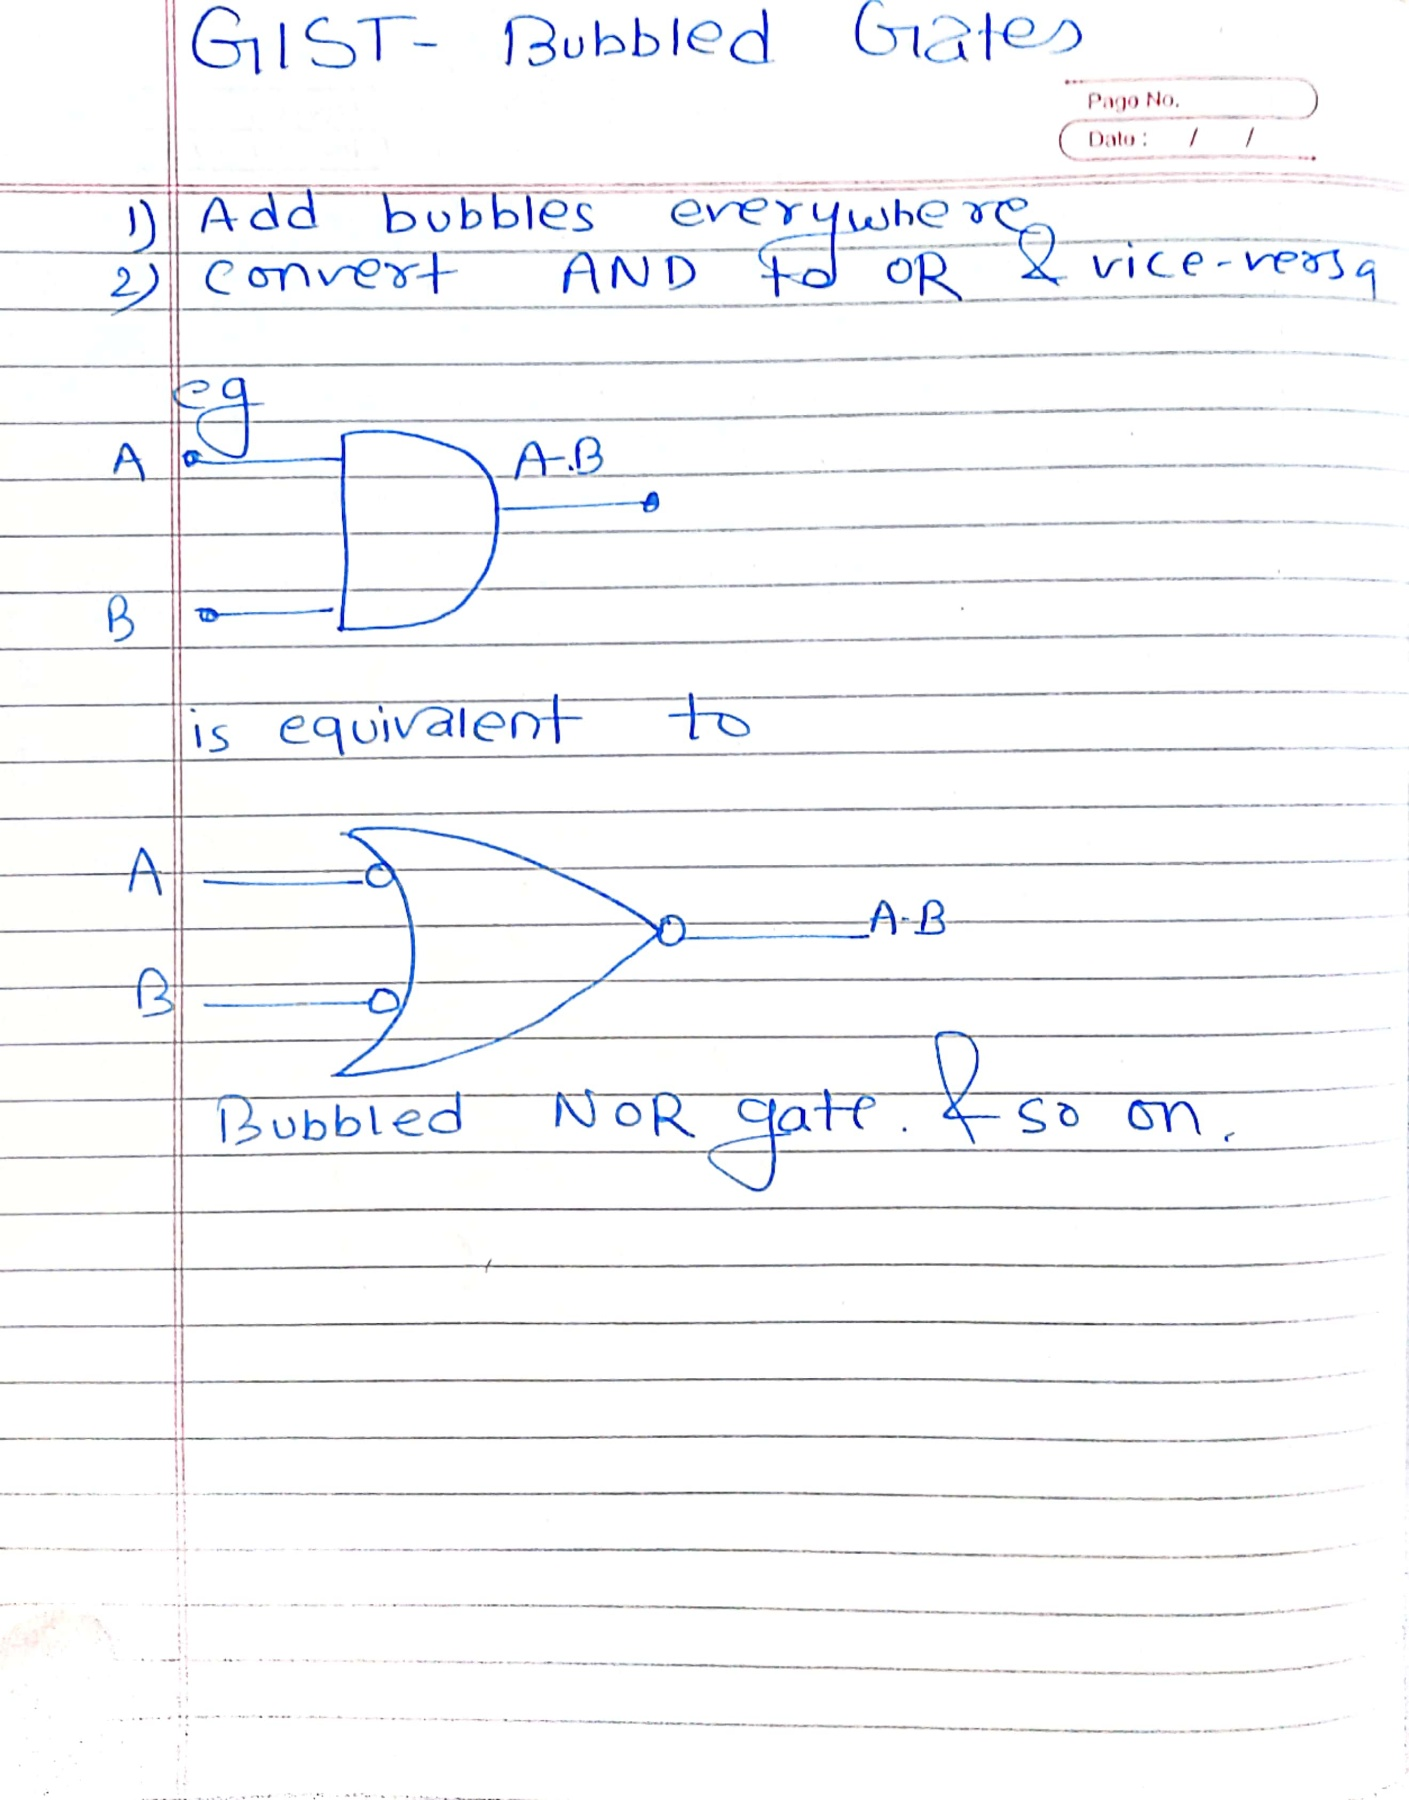 GIST- Bubbled Gates
Page No.
Date : / /
1) Add bubbles everywhere
2) convert AND to OR & vice-versa
eg
A
A.B
B
is equivalent to
A
A-B
B
Bubbled NOR gate. & so on.